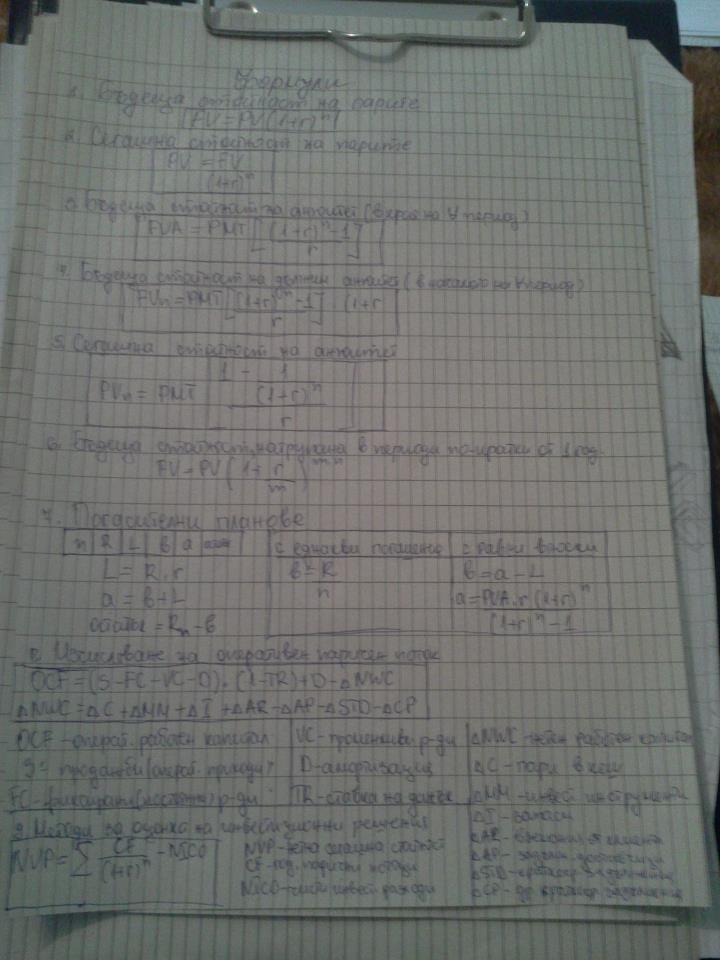 Формули
1. Бъдеща стойност на парите
FV = PV (1+r)^n
2. Сегашна стойност на парите
PV = FV
(1+r)^n
3. Бъдеща стойност на анюитет (в края на ∀ период)
FVA = PMT [(1+r)^n - 1]
r
4. Бъдеща стойност на дължим анюитет (в началото на ∀ период)
FVn = PMT [(1+r)^n - 1] (1+r
r
5. Сегашна стойност на анюитет
1 - 1
PVn = PMT (1+r)^n
r
6. Бъдеща стойност, натрупана в периоди по-кратки от 1 год.
FV = PV (1 + r)^mn
m
7. Погасителни планове
n R L в a остат
L = R.r
a = в + L
остатък = Rn - в
с еднакви погашения
в = R
n
с равни вноски
в = a - L
a = PVA.r (1+r)^n
(1+r)^n - 1
8. Изчисляване на оперативен паричен поток
OCF = (S-FC-VC-D).(1-TR)+D-ΔNWC
ΔNWC = ΔC+ΔMM+ΔI+ΔAR-ΔAP-ΔSTD-ΔCP
OCF - операт. работен капитал
S - продажби (операт. приходи)
FC - фиксирани (постоянни) р-ди
VC - променливи р-ди
D - амортизация
TR - ставка на данък
ΔNWC - нетен работен капитал
ΔC - пари в кеш
ΔMM - инвест. инструменти
ΔI - запаси
ΔAR - вземания от клиенти
ΔAP - задълж. доставчици
ΔSTD - краткоср. задължения
ΔCP - др. краткоср. задължения
9. Методи за оценка на инвестиционни решения
NVP = Σ CF - NICO
(1+r)^n
NVP - нетна сегашна стойност
CF - год. парични потоци
NICO - чисти инвест. разходи